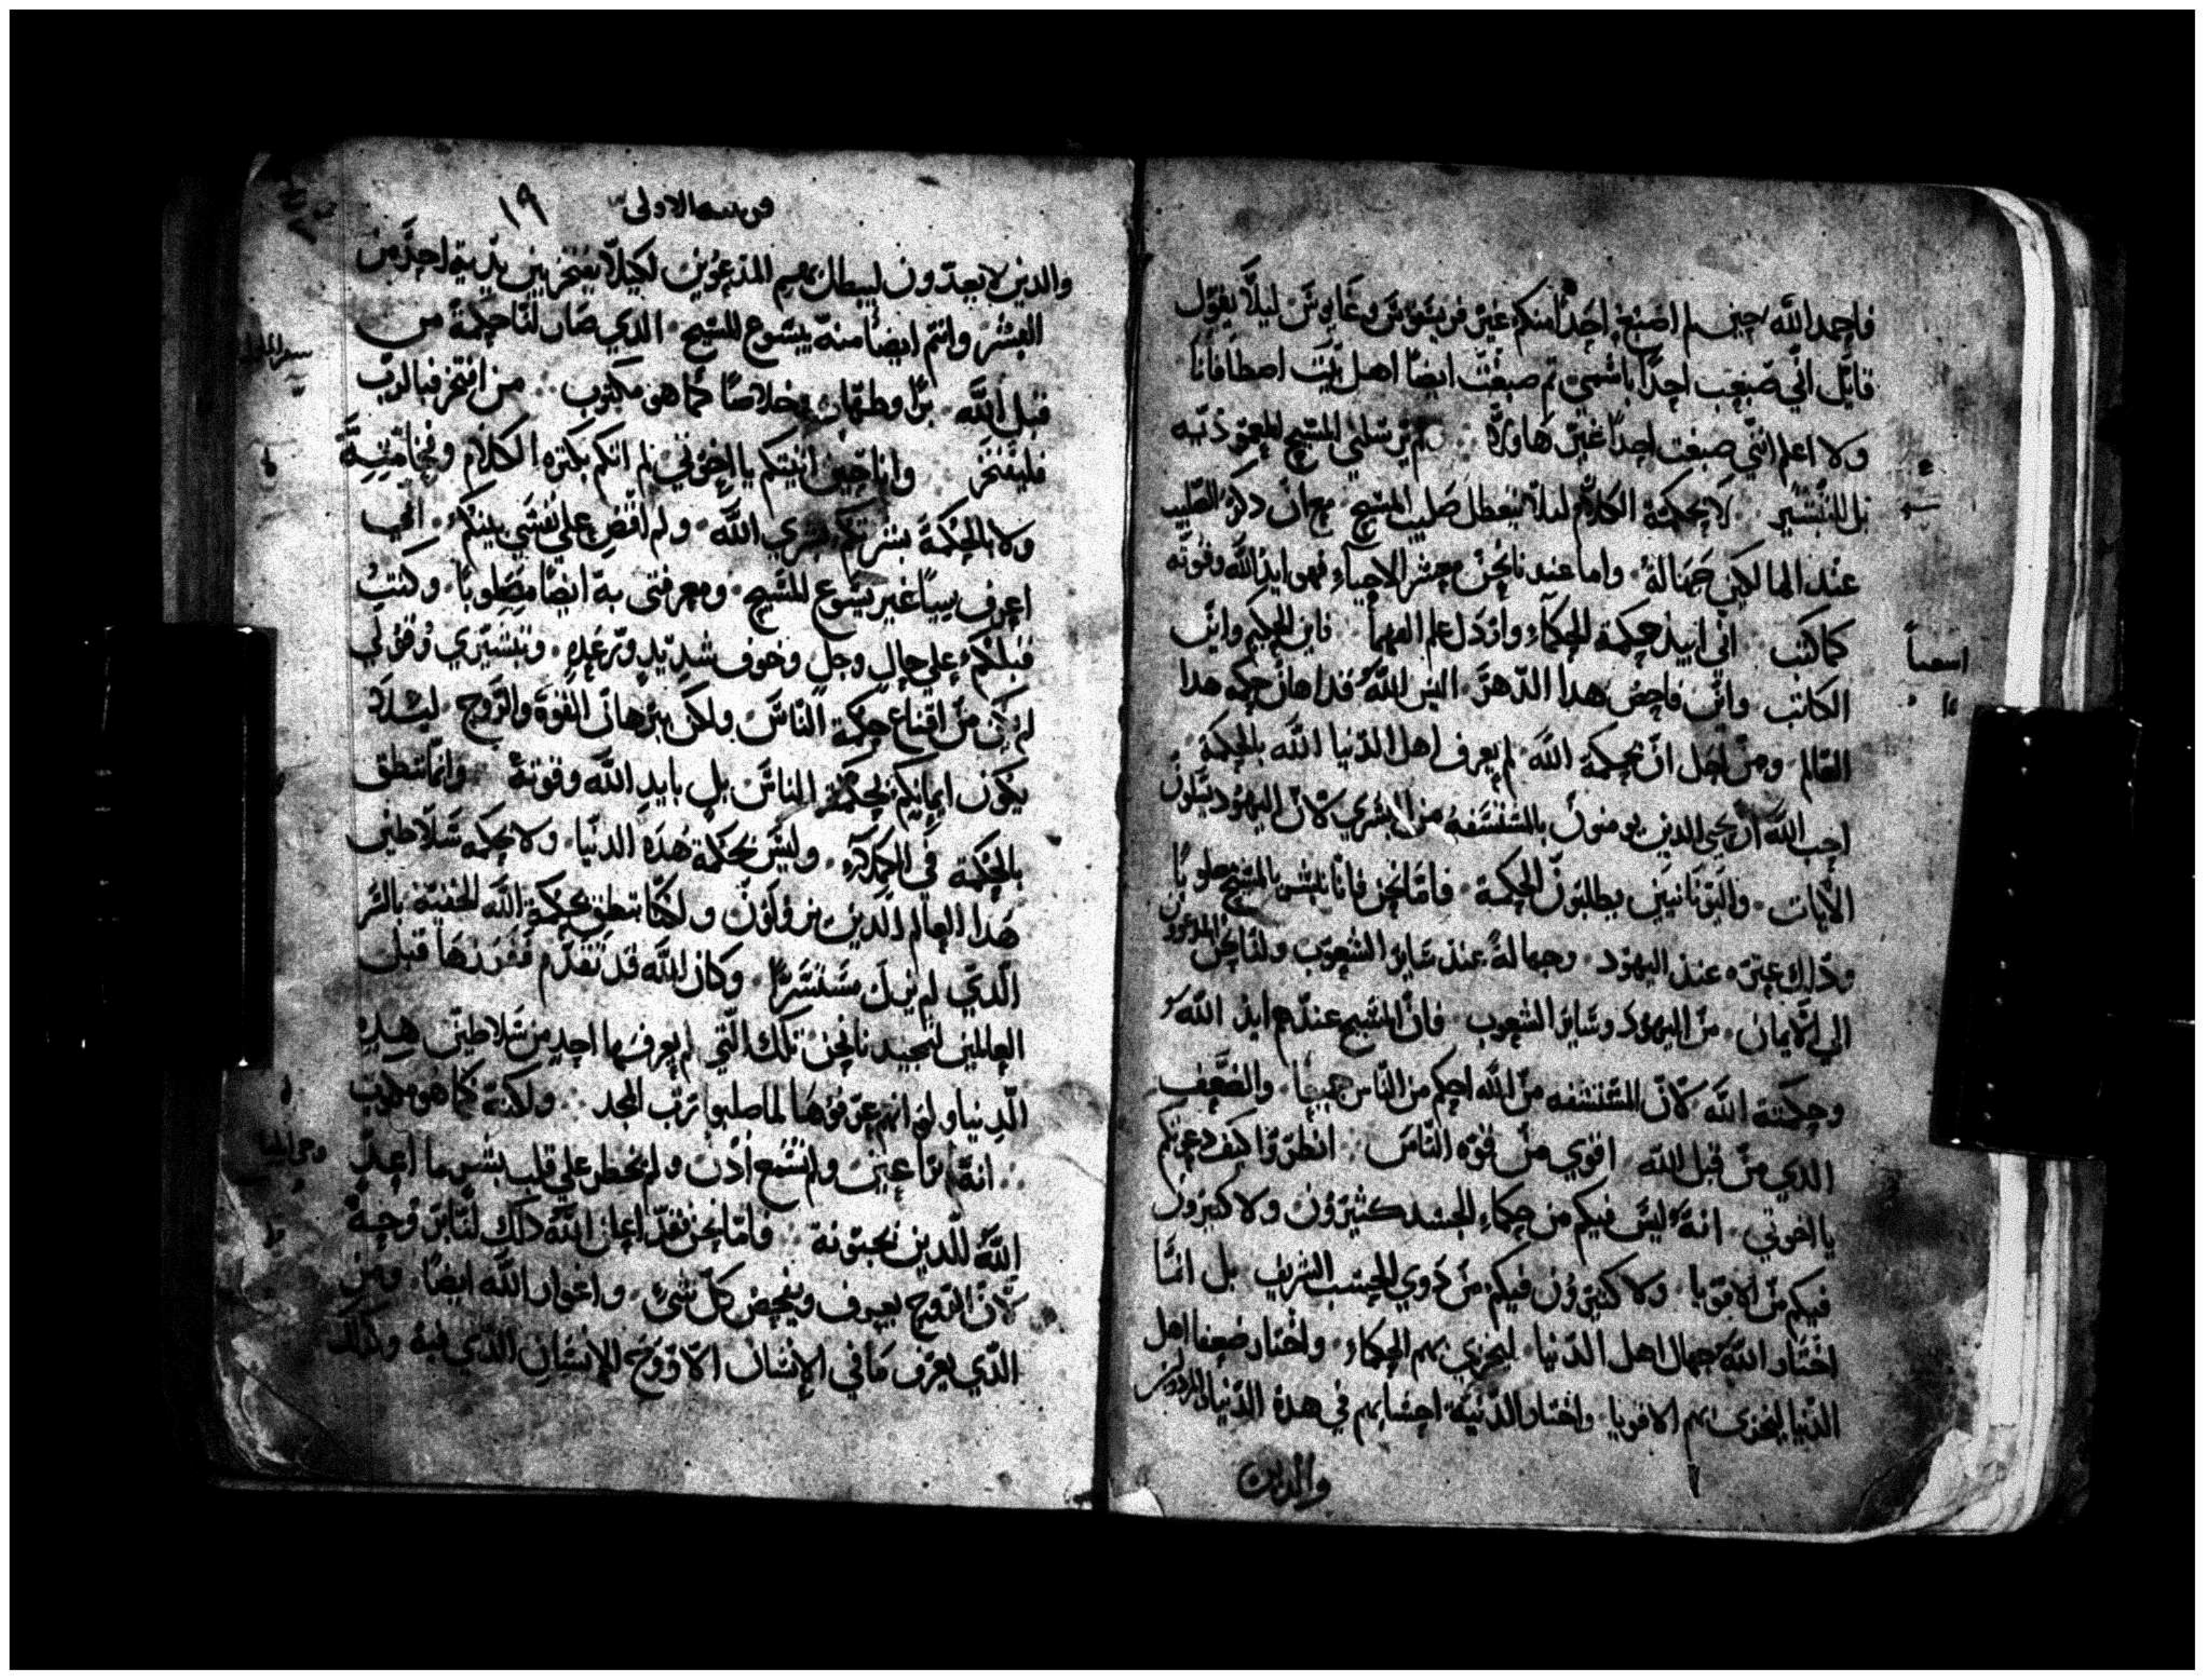 فاحمد الله حين لم اصبغ احداً منكم غير قريسقوس وغايوس ليلّا يقول
قايل اني صبغت احداً باسمي ثم صبغت ايضاً اهل بيت اصطافانا
ولا اعلم انني صبغت احداً غير هاولاء لم يرسلني المسيح للمعموذيه
بل للتبشير لا بحكمة الكلام ليلا يتعطل صليب المسيح مع ان ذكر الصليب
عند الهالكين جهالة واما عندنا نحن معشر الاحياء فهو ايد الله وقوته
كما كتب اني ابيد حكمة الحكماء وارذل علم الفهما فاين الحكيم واين
الكاتب واين فاحص هذا الدهر اليس الله قد اهان حكمه هذا
العالم ومن اجل ان بحكمة الله لم يعرف اهل الدنيا الله بالحكمة
احب الله ان يحيي الدين يومنون بالمستسفه من البشري لان اليهود يسلون
الايات واليونانيين يطلبون الحكمة فاما نحن فانا نبشر بالمسيح مصلوبًا
وذلك عثره عند اليهود وجهالة عند ساير الشعوب ولنا نحن المدعوون
الي الايمان من اليهود وساير الشعوب فان المسيح عندهم ايد الله
وحكمة الله لان المستسفه من الله احكم من الناس جميعا والضعيف
الذي من قبل الله اقوي من قوه الناس انظروا كيف دعوتكم
يا اخوتي انه ليس فيكم من حكماء الجسد كثيرون ولا كثيرون
فيكم من الاقويا ولا كثيرون فيكم من ذوي الحسب الشريف بل انما
اختار الله جهال اهل الدنيا ليخزي بهم الحكماء واختار ضعفا اهل
الدنيا ليخزي بهم الاقويا واختار الدنية احسابهم في هذه الدنيا المردولين
والدين
قرنتيه الاولى ١٩
والدين لا يعدون ليبطل بهم المدعوين لكيلا يفتخر بين يديه احد من
البشر وانتم ايضا منه بيسوع المسيح الذي صار لنا حكمة من
قبل الله برًا وطهارة وخلاصًا كما هو مكتوب من افتخر فبالرب
فليفتخر وانا حين اتيتكم يا اخوتي لم اتكم بكثره الكلام
ولا بالحكمة بشرتكم بسري الله ولم اقض علي نفسي بينكم اني
اعرف شيياً غير يسوع المسيح ومعرفتي به ايضا مصلوبًا وكنت
قبلكم علي حال وجل وخوف شديد ورعده وتبشيري وقولي
لم يكن من اقناع حكمة الناس ولكن ببرهان القوة والروح ليلا
يكون ايمانكم بحكمة الناس بل بايد الله وقوته وانما ننطق
بالحكمة في الكملاء وليس بحكمة هذه الدنيا ولا بحكمه سلاطين
هذا العالم الذين يزولون ولكنا ننطق بحكمة الله الخفية بالسر
الذي لم يزل مستسرًا وكان الله قد تقدم ففرزها قبل
العالمين لتمجيدنا نحن تلك التي لم يعرفها احد من سلاطين هذه
الدنيا ولو انهم عرفوها لما صلبوا رب المجد ولكنه كما هو مكتوب
انه لم ترا عين ولم تسمع اذن ولم يخطر علي قلب بشر ما اعد
الله للذين يحبونه فاما نحن فقد اعلن الله ذلك لنا بروحه
لان الروح يعرف ويفحص كل شي واغوار الله ايضا ومن
الذي يعرف ما في الانسان الا روح الانسان الذي فيه وكذلك